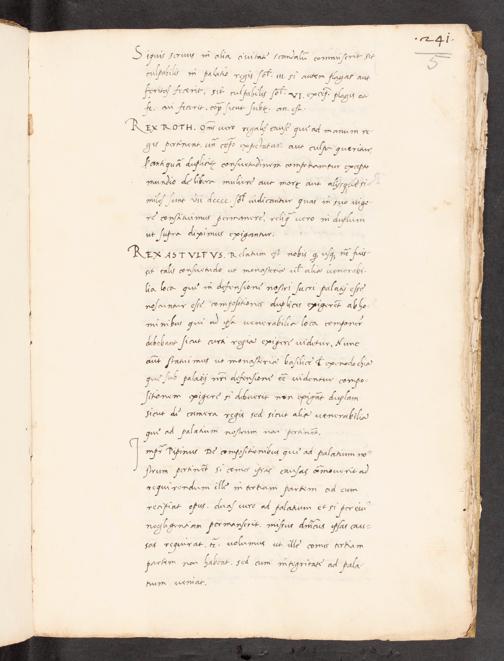 .241.
5
Siquis servus in alia civitate scandalū commiserit sit
culpabilis in palatio regis sol. III. si autem plagas aut
feritas fecerit, sit culpabilis sol. VI. excep. plagis
aū fecerit, sicut
REX ROTH. Om̄s vero regales causę quę ad manum re
gis pertinent aut culpa queritur
duplicię consuetudinem componantur excepto
mundio de libera muliere aut morte aut
miles sunt VII decec sol. iudicantur quas in suo vigo
re constituimus permanere, reliq̄ vero in duplum
ut supra diximus exigantur.
REX ASTULFUS. Relatum est nobis q usq nc̄ fuis
set talis consuetudo ut monasteria ut alia venerabi
lia loca que in defensione nostri sacri palatij esse
noscuntur esse compositiones duplicis exigerent ab ho
minibus qui ad ipsa venerabilia loca componere
debebant sicut cura regia exigere videtur. Nunc
aūt statuimus ut monasteria basilicę & exenodochia
que sub palatij nr̄i defensione eē videntur compo
sitionem exigere si debuerit non exigant duplam
sicut de camera regis sed sicut alia venerabilia
que ad palatum nostrum non pertinent.
Impr̄ Pipinus De compositionibus que ad palatium no
strum pertinent si comes ipsas causas cōmoverit ad
requirendum ille in tertiam partem ad eum
recipiat opus. duas vero ad palatum et si per eiū
neglegentiam permanserit. missus dn̄icus ipsas cau
sas requirat. tr̄. volumus ut ille comes tertiam
partem non habeat. sed cum integritate ad pala
tium veniat.